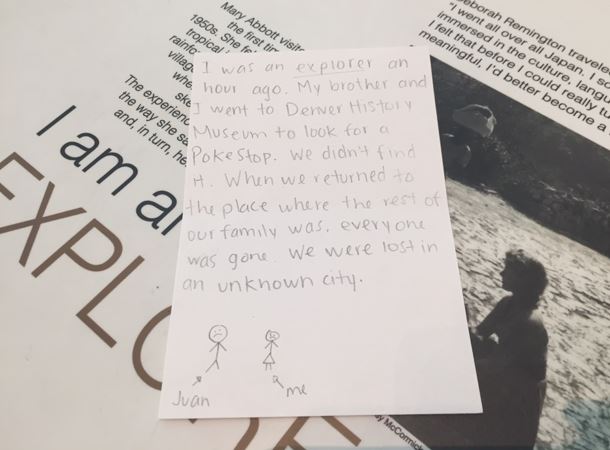 Mary Abbott visite
1950s. She fe
the first tim
tropical
rainfo
village
whe
ske
The experienc
the way she sa
and, in turn, he
I am an
EXPLO
RE
Deborah Remington travele
"I went all over all Japan. I so
immersed in the culture, langu
I felt that before I could really tu
meaningful, I'd better become a
I was an explorer an
hour ago. My brother and
I went to Denver History
Museum to look for a
PokeStop. We didn't find
it. When we returned to
the place where the rest of
our family was, everyone
was gone. We were lost in
an unknown city.
Juan
me
by McCormick